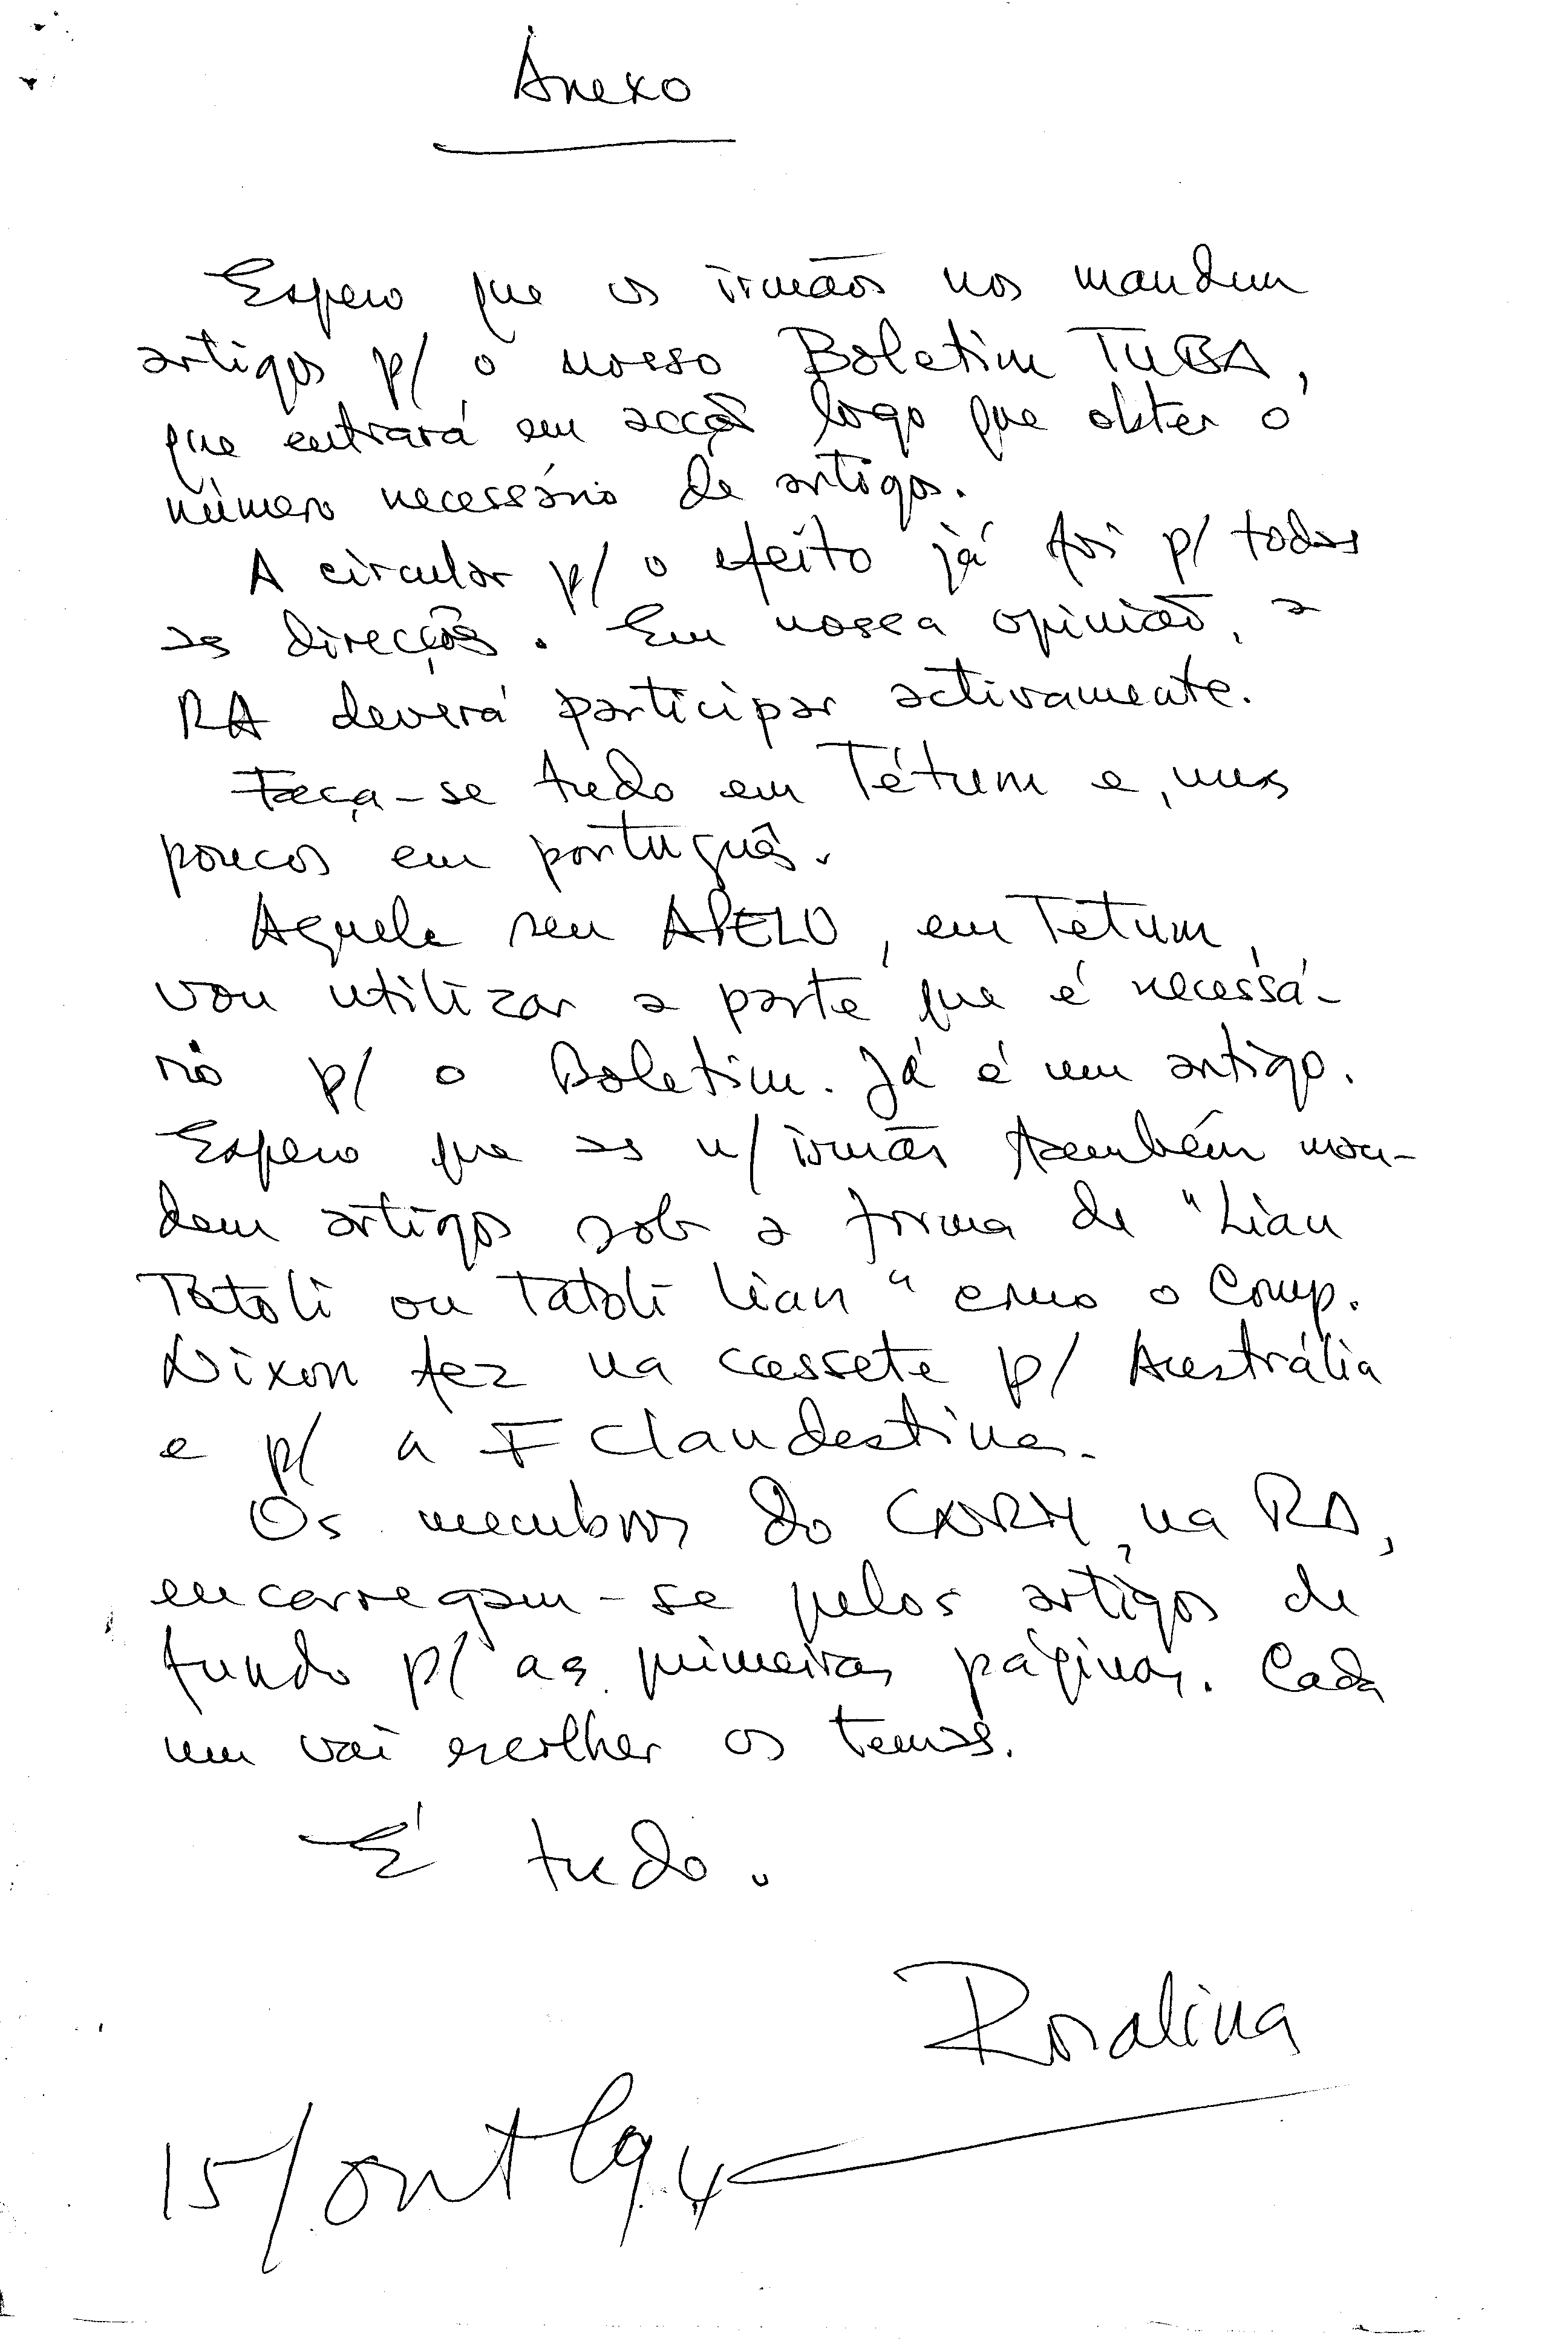 Anexo
Espero que os irmãos nos mandem
artigos p/ o nosso Boletim TUBA,
que entrará em acção logo que obter o
número necessário de artigos.
A circular p/ o efeito já foi p/ todas
as direcções. Em nossa opinião, a
RA deverá participar activamente.
Faça-se tudo em Tétum e, uns
poucos em português.
Aquele seu APELO, em Tetum,
vou utilizar a parte que é necessá-
rio p/ o Boletim. Já é um artigo.
Espero que as n/ irmãs também man-
dem artigos sob a forma de "Lian
Tatoli ou Tatoli Lian" como o Comp.
Nixon fez na cassete p/ Austrália
e p/ a F Clandestina.
Os membros do CNRM, na RA,
encarregam-se pelos artigos de
fundo p/ as primeiras páginas. Cada
um vai escolher os temas.
É tudo.
Rosalina
15/out/94